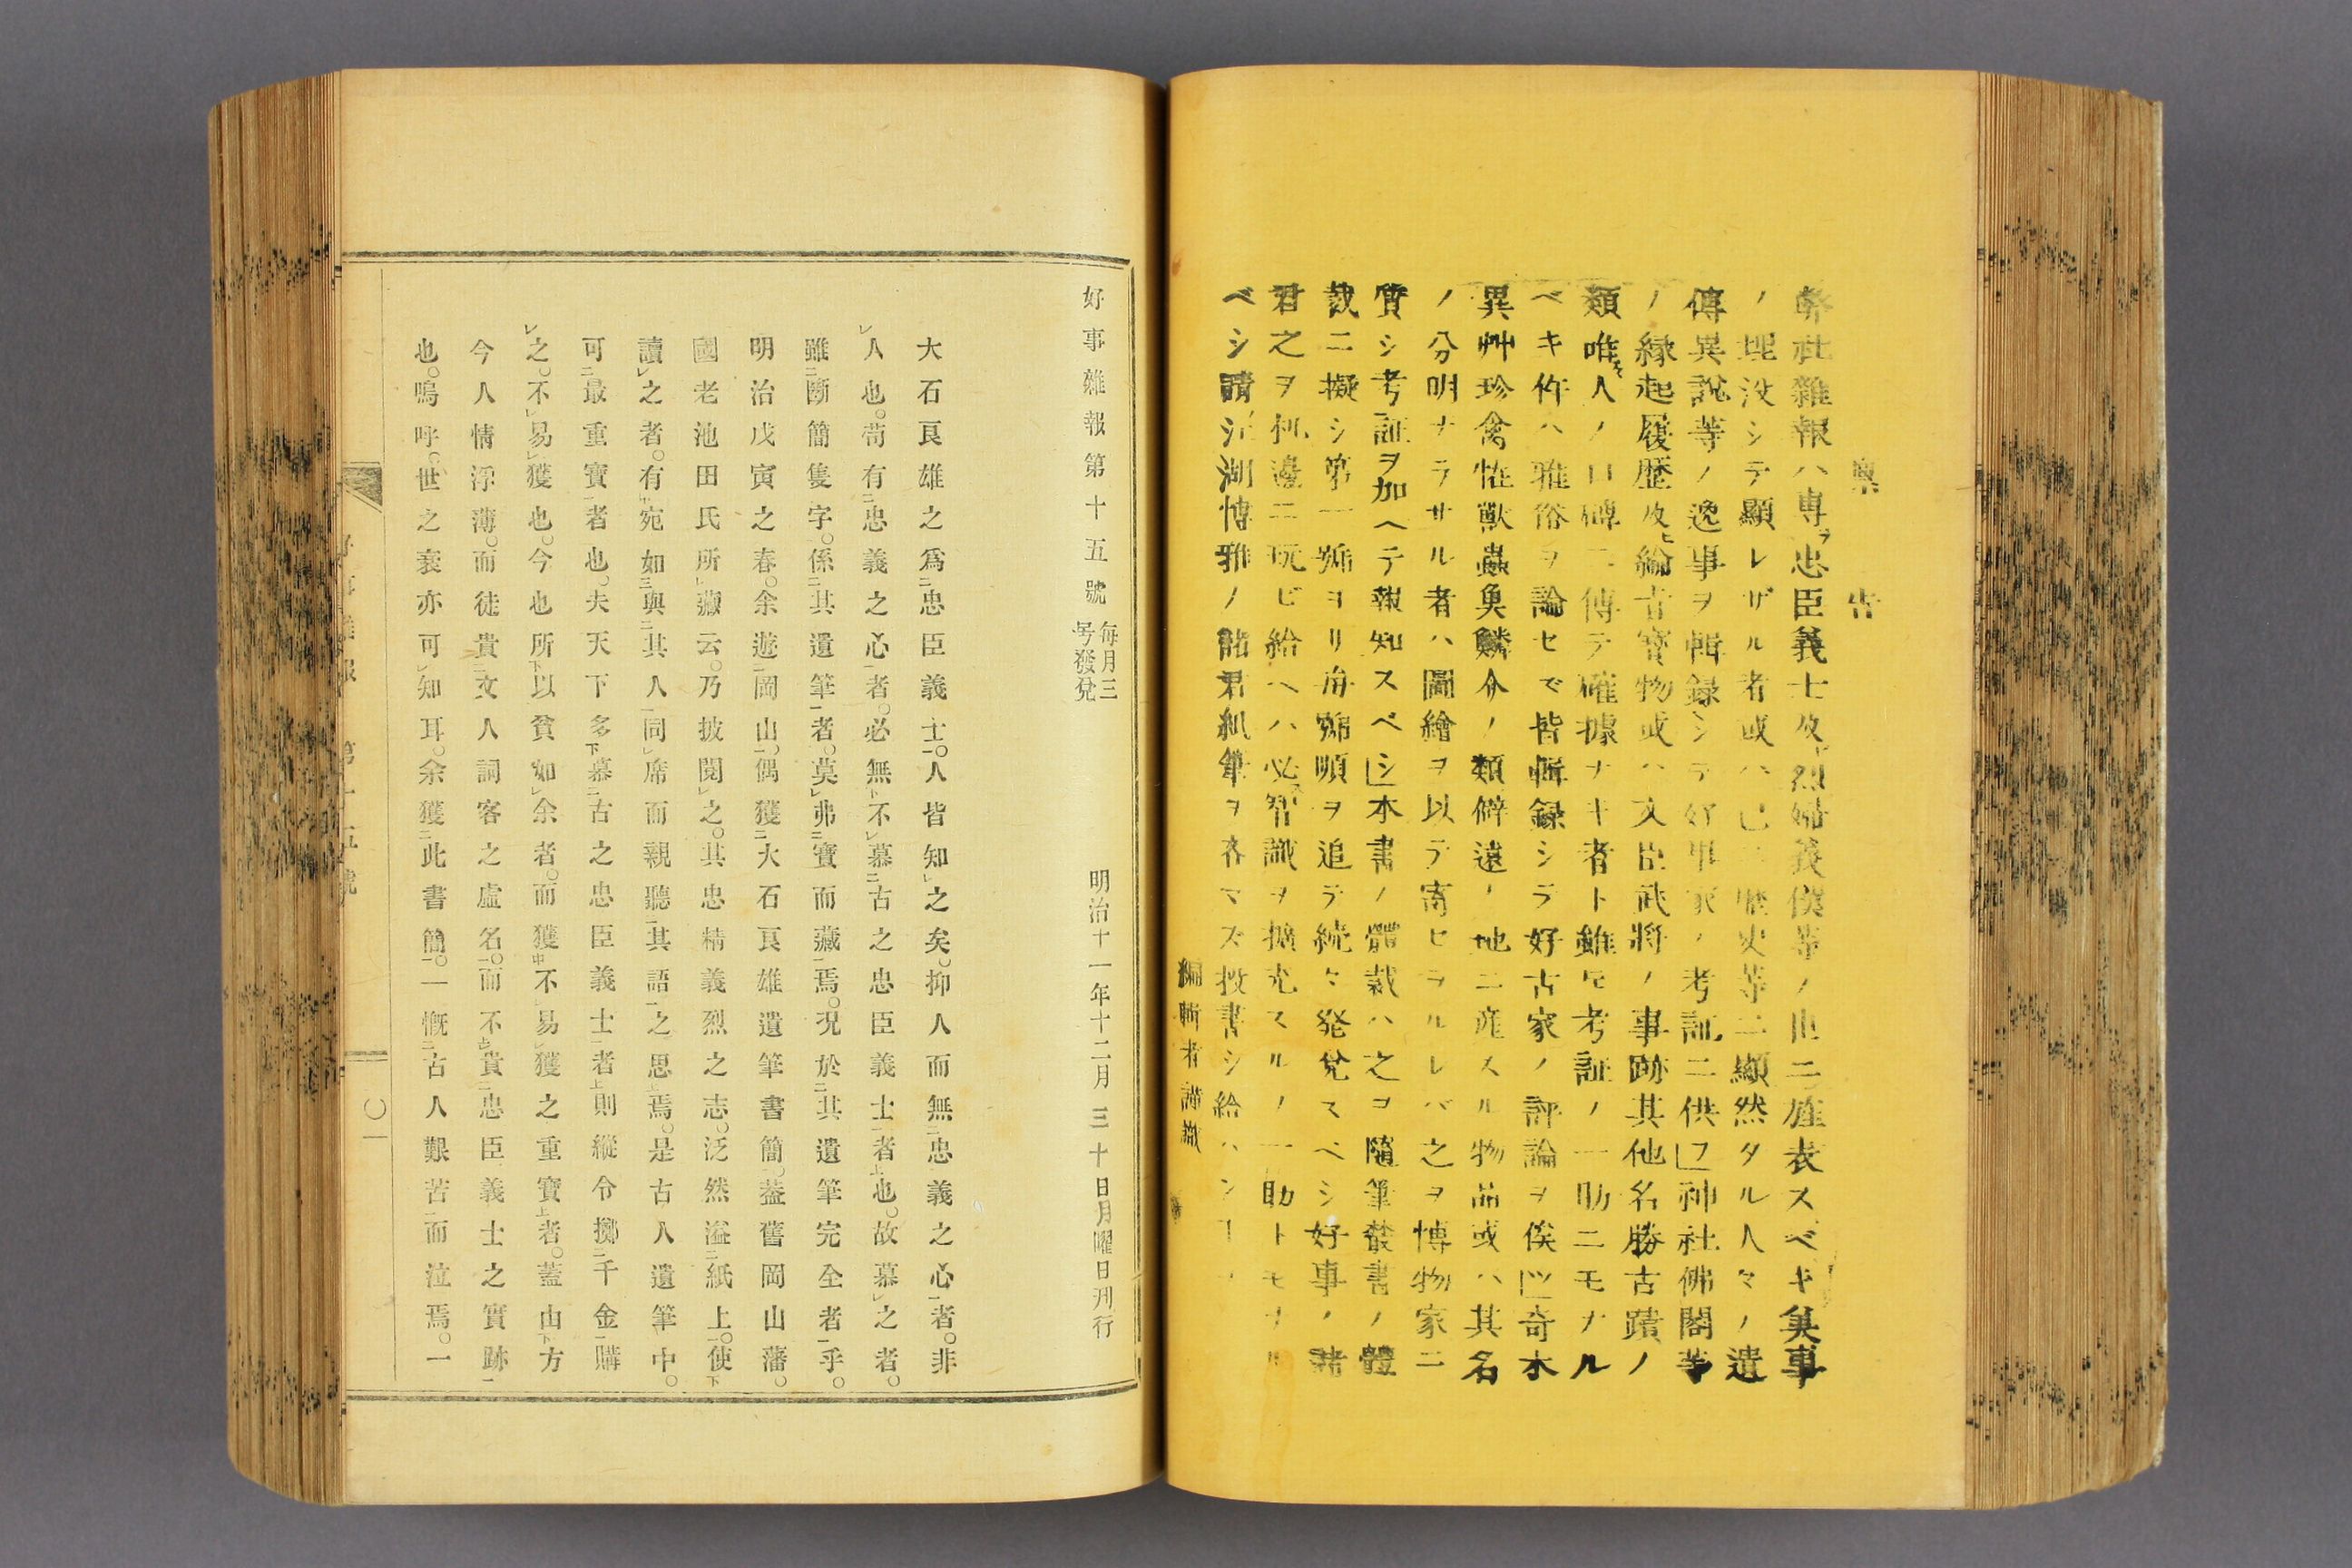 稟告
弊社雜報ハ専ラ忠臣義士及ヒ烈婦義僕等ノ世ニ旌表スベキ美事
ノ埋没シテ顯レザル者或ハ已ニ歴史等ニ顯然タル人々ノ遺
傳異說等ノ逸事ヲ輯録シテ好事家ノ考証ニ供フ神社佛閣等
ノ縁起履歴及ヒ綸旨寳物或ハ文臣武将ノ事跡其他名勝古蹟ノ
類唯々人ノ口碑ニ傳テ確據ナキ者ト雖モ考証ノ一助ニモナル
ベキ件ハ雅俗ヲ論セで皆輯録シテ好古家ノ評論ヲ俟ツ奇木
異艸珍禽恠獣蟲奠鱗介ノ類僻遠ノ地ニ産スル物品或ハ其名
ノ分明ナラサル者ハ圖繪ヲ以テ寄ヒヲルレバ之ヲ博物家ニ
質シ考証ヲ加ヘテ報知スベシ本書ノ體裁ハ之ヲ隨筆叢書ノ體
裁ニ擬シ第一号ヨリ毎號順ヲ追テ続々発兌スベシ好事ノ諸
君之ヲ机邊ニ玩ビ給ヘハ必ス智識ヲ擴充スルノ一助トモナル
ベシ請フ江湖博雅ノ諸君紙筆ヲ吝マズ投書シ給ハンヿヲ
編輯者謹識
好事雜報第十五號 每月三号發兌 明治十一年十二月三十日月曜日刋行
大石良雄之爲二忠臣義士一。人皆知レ之矣。抑人而無二忠義之心一者。非
レ人也。苟有二忠義之心一者。必無下不レ慕二古之忠臣義士一者上也。故慕レ之者。
雖二斷簡隻字。係二其遺筆一者。莫レ弗二寶而藏一焉。况於二其遺筆完全者一乎。
明治戊寅之春。余遊二岡山一。偶獲二大石良雄遺筆書簡一。葢舊岡山藩。
國老池田氏所レ藏云。乃披閱レ之。其忠精義烈之志。泛然溢二紙上一。使下
讀レ之者。有中宛如三與二其人一同レ席而親聽二其語一之思上焉。是古人遺筆中。
可二最重寶一者也。夫天下多下慕二古之忠臣義士一者上則縱令擲二千金一購
レ之。不レ易レ獲也。今也所下以貧如レ余者。而獲中不レ易レ獲之重寶上者。蓋由下方
今人情浮薄。而徒貴二文人詞客之虛名一。而不占貴二忠臣義士之實跡一
也。嗚呼。世之衰亦可レ知耳。余獲二此書簡一。一慨二古人艱苦一而泣焉。一
好事雜報 第十五號
一〇